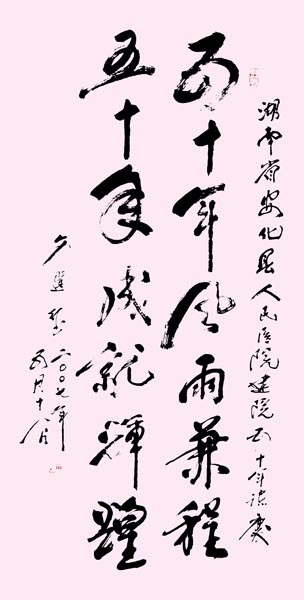 湖南省安化县人民医院建院五十年誌庆
五十年风雨兼程
五十年成就輝煌
久選 二〇〇七年
五月十八日